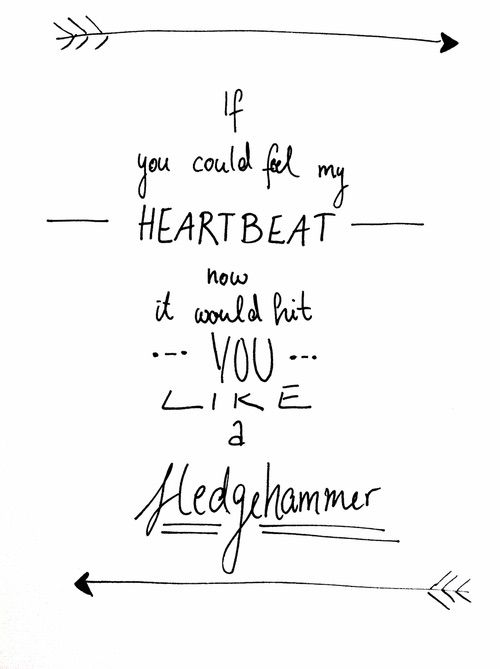 If
you could feel my
HEARTBEAT
now
it would hit
YOU
LIKE
a
sledgehammer